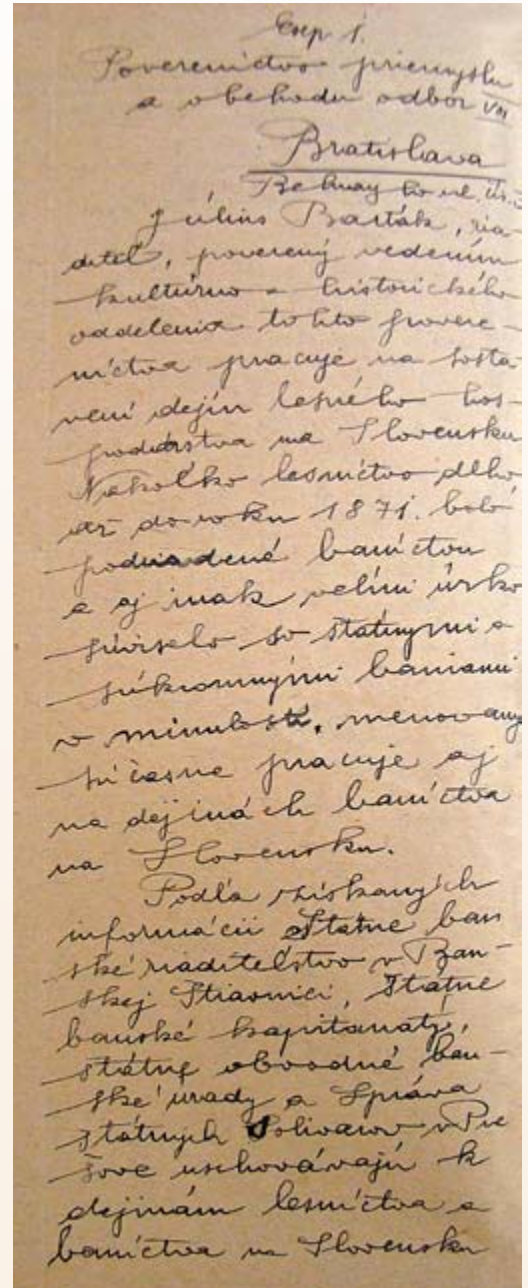 Exp. 1.
Povereníctvo priemyslu
a obchodu odbor VII
Bratislava
Július Barták, ria-
diteľ, poverený vedením
kultúrno-historického
oddelenia tohto povere-
níctva pracuje na sosta-
vení dejín lesného hos-
podárstva na Slovensku
Nakoľko lesníctvo dlho
až do roku 1871. bolo
podriadené baníctvu
a aj inak veľmi úzko
súviselo so štátnymi a
súkromnými baniami
v minulosti, menovaný
súčasne pracuje aj
na dejinách baníctva
na Slovensku.
Podľa získaných
informácií Štátne ban
ské riaditeľstvo v Ban-
skej Štiavnici, Štátne
banské kapitanaty,
štátne obvodné ban-
ské úrady a Správa
štátnych Solivarov v Pre
šove uschovávajú k
dejinám lesníctva a
baníctva na Slovensku